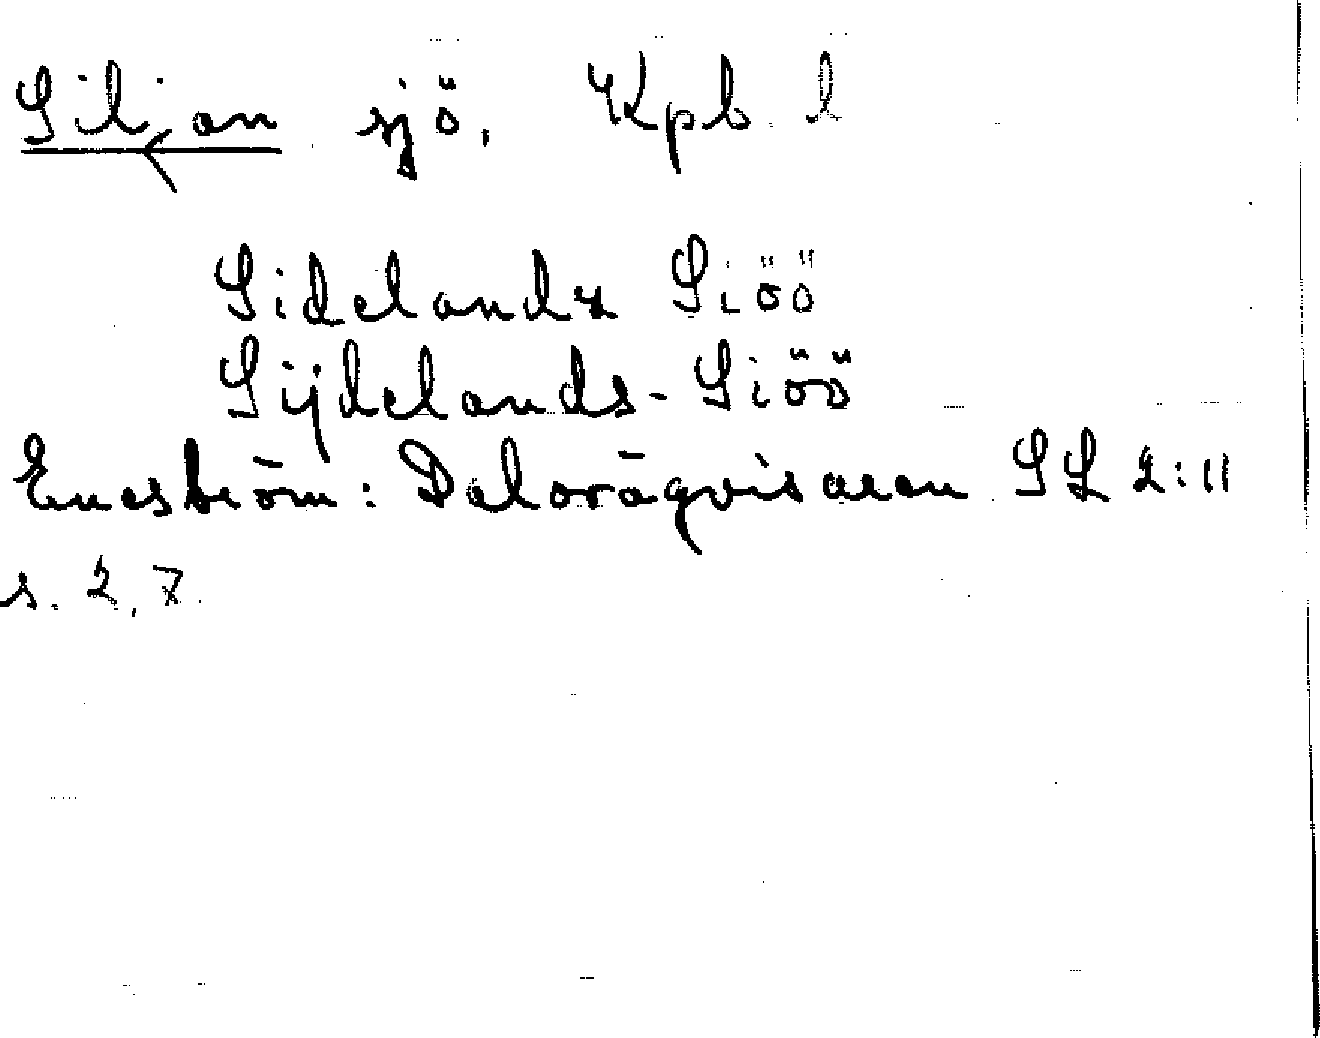 Siljan sjö, Kpb. l
Sidelandz Siöö
Sijdelands-Siöö
Eneström: Dalovägvisaren SL 2:11
s. 2, 7.